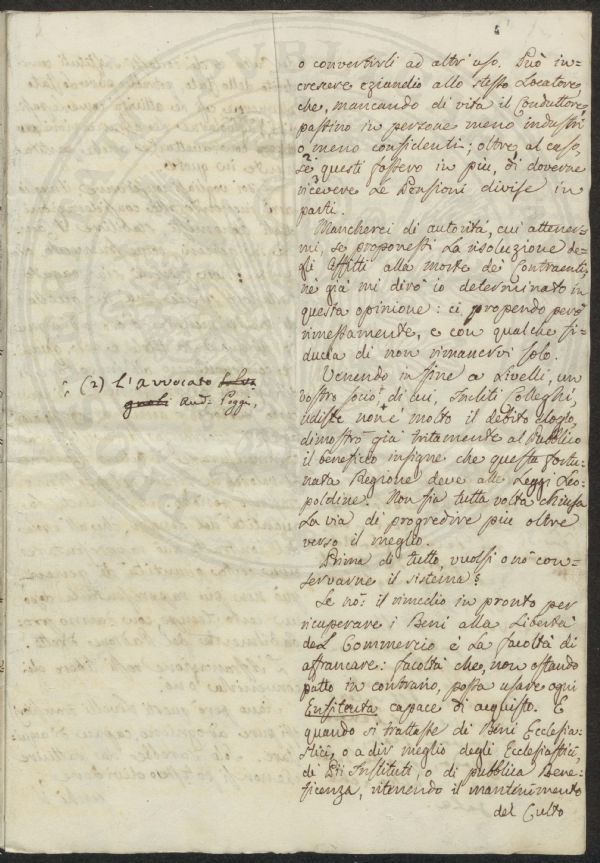 o convertirli ad altr' uso. Può in=
crescere eziandio allo stesso Locatore,
che, mancando di vita il Conduttore,
passino in persone meno industri
o meno confidenti; oltre al caso,
se questi fossero in più, di doverne
ricevere le Pensioni divise in
parti.
Mancherei di autorità, cui attener=
mi, se proponessi la risoluzione de=
gli Affitti alla morte dei Contraenti,
nè già mi dirò io determinato in
questa opinione: ci propendo però
rimessamente, e con qualche fi=
ducia di non rimanervi solo.
Venendo in fine a Livelli, un
vostro socio, di cui, Incliti Colleghi,
udiste non è molto il debito elogio,
dimostrò già tritamente al Pubblico
il beneficio insigne che questa fortu=
nata Regione deve alle Leggi Leo=
poldine. Non sia tutta volta chiusa
la via di progredire più oltre
verso il meglio.
Prima di tutto, vuolsi o nò con=
servarne il sistema?
Se nò: il rimedio in pronto per
ricuperare i Beni alla Libertà
del Commercio è la facoltà di
affrancare: facoltà che, non ostando
patto in contrario, possa usare ogni
Enfiteuta capace di acquisto. E
quando si trattasse di Beni Ecclesia=
stici, o a dir meglio degli Ecclesiastici,
di Pii Instituti, o di pubblica Bene=
ficenza, ritenendo il mantenimento
del Culto
(2) L'avvocato
Aud. Poggi,